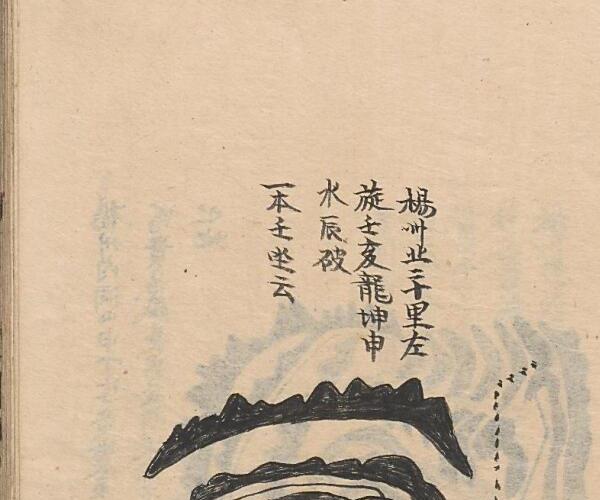 楊州北二十里左
旋壬亥龍坤申
水辰破
一本壬坐云